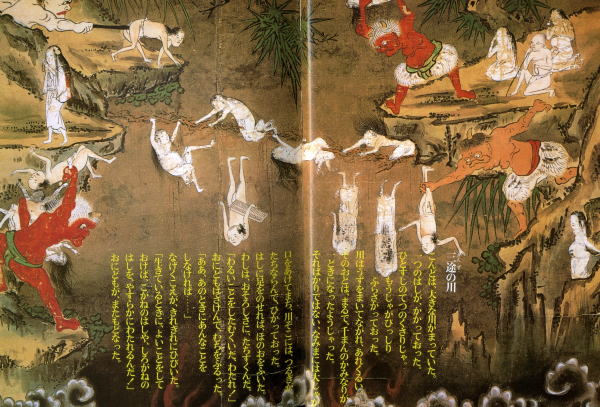 三途の川
こんどは、大きな川がまっていた。
一つのはしが、かかっておった。
ひとすじのてつのくさりじゃ。
もうじゃがびっしり
ぶらさがっておった。
川はうずをまいてながれ、あれくるい、
そのおとは、まるで、千まんのかみなりが
一どきになったようじゃった。
そればかりではない、ななまこはたくらい
口をあけてまち、川ぞこには、つるぎが
たちならんで、ひかっておった。
はしに足をのせれば、ほのおをふいた。
わしは、おそろしさに、たちすくんだ。
「わるいことをしたむくいだ、わたれ！」
おにどもはさけんで、むちをふるった。
「ああ、あのときにあんなことを
しなければ……」
なげくこえが、きれぎれにひびいた。
「生きているときに、よいことをして
おけば、こがねのはしや、しろがねの
はしを、やすらかにわたれるんだ！」
おにどもが、またもどなった。